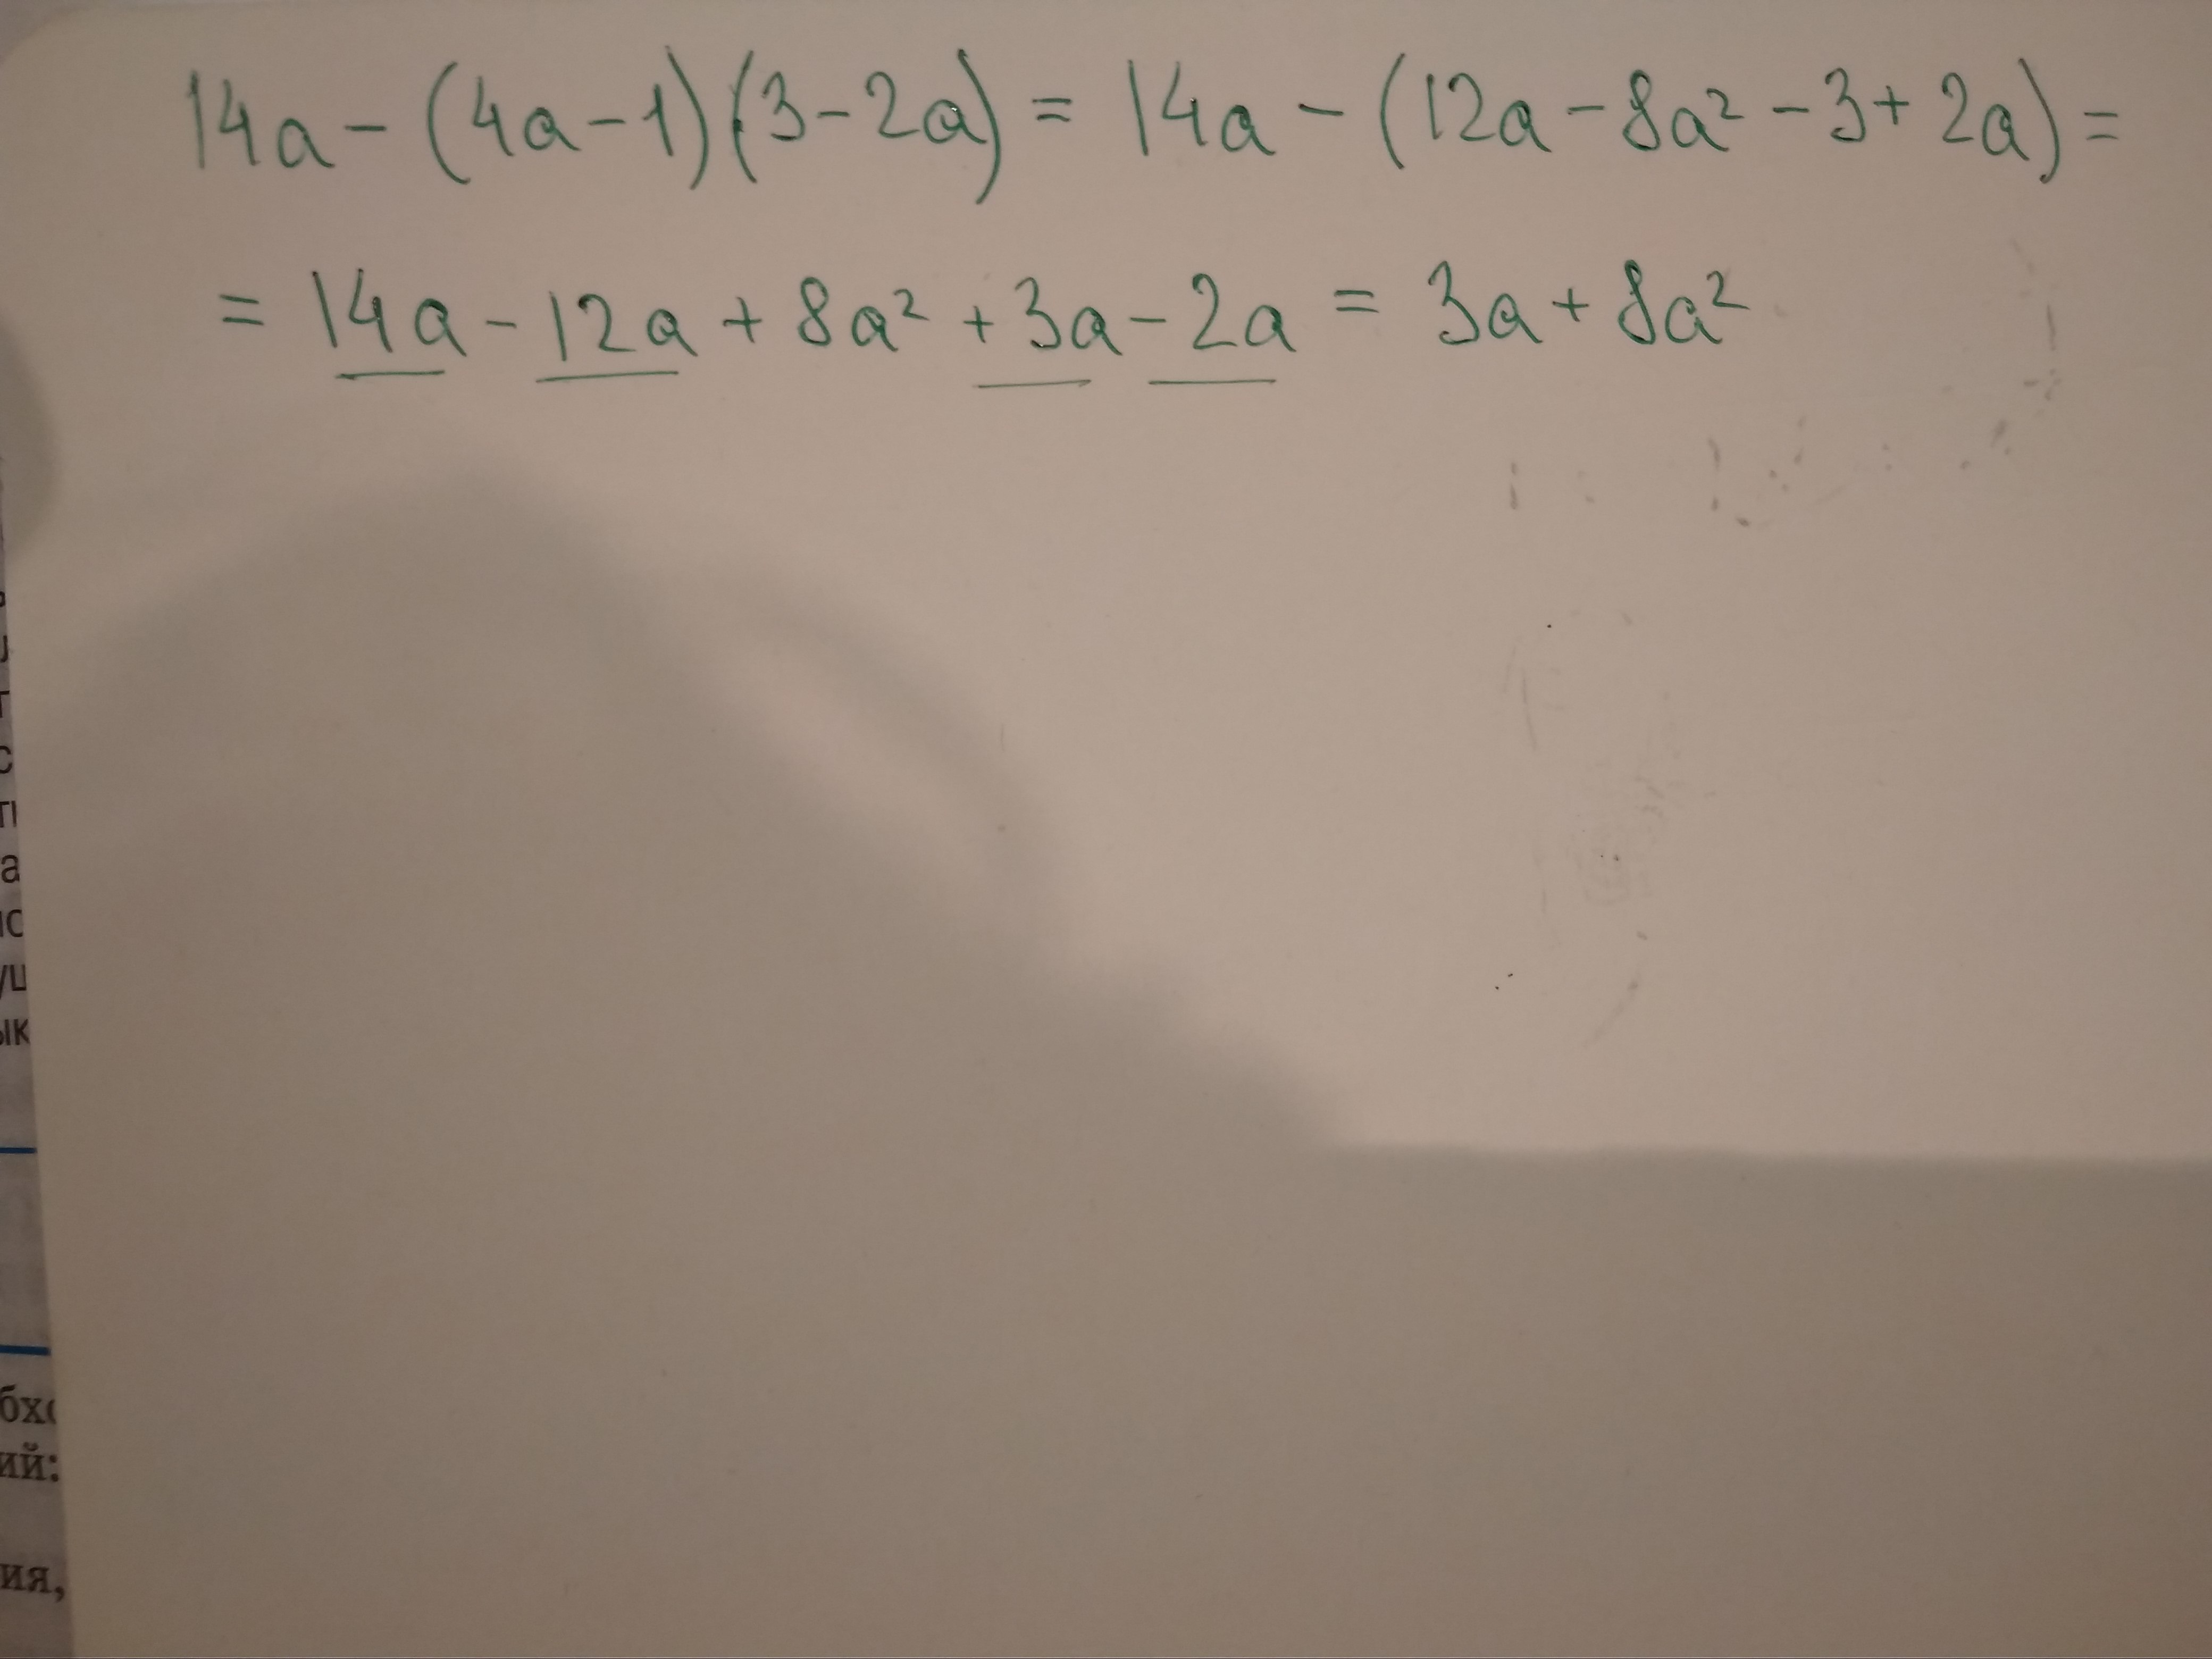 14a - (4a - 1)(3 - 2a) = 14a - (12a - 8a² - 3 + 2a) =
= 14a - 12a + 8a² + 3a - 2a = 3a + 8a²
бхо
ий:
ия,